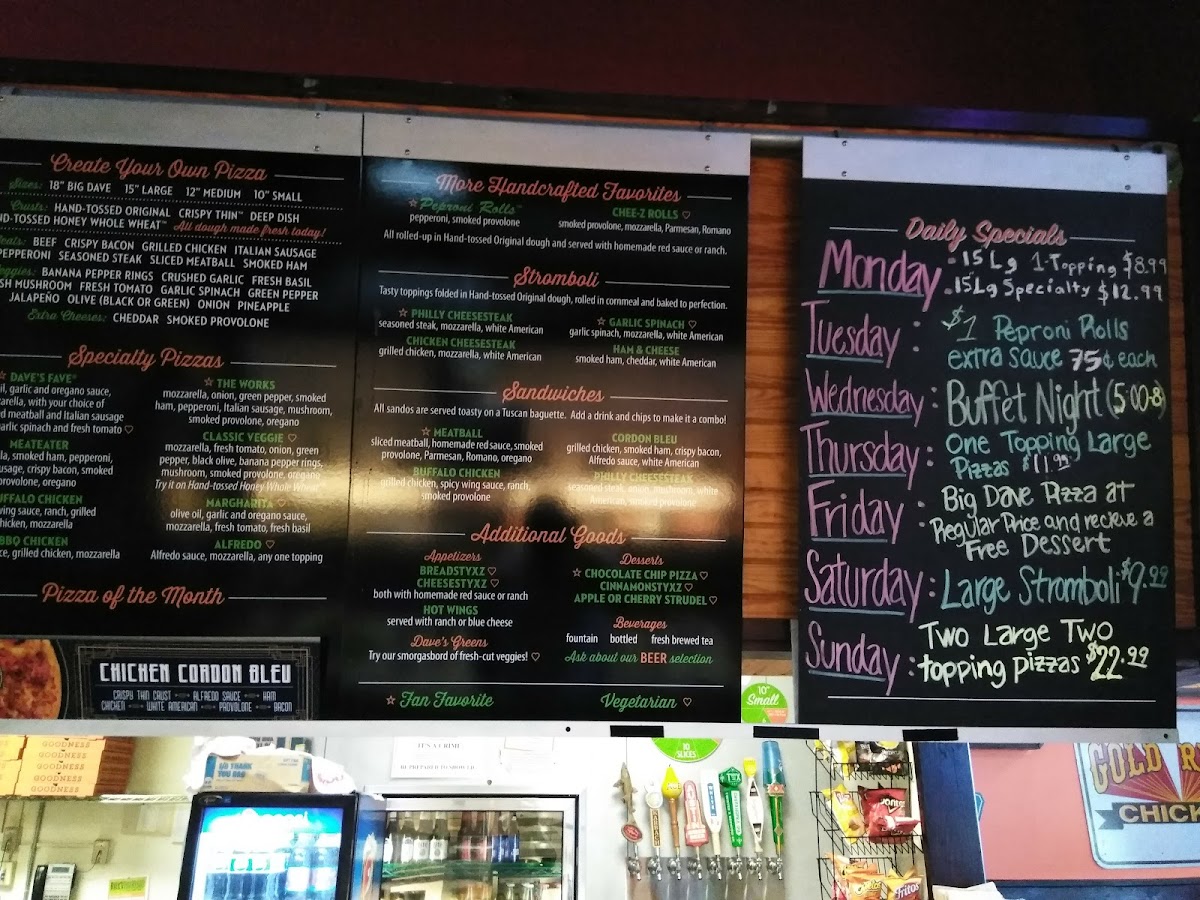 Create Your Own Pizza
Sizes: 18" BIG DAVE 15" LARGE 12" MEDIUM 10" SMALL
Crusts: HAND-TOSSED ORIGINAL CRISPY THIN™ DEEP DISH
HONEY WHOLE WHEAT™ All dough made fresh today!
BEEF CRISPY BACON GRILLED CHICKEN ITALIAN SAUSAGE
PEPPERONI SEASONED STEAK SLICED MEATBALL SMOKED HAM
BANANA PEPPER RINGS CRUSHED GARLIC FRESH BASIL
MUSHROOM FRESH TOMATO GARLIC SPINACH GREEN PEPPER
JALAPEÑO OLIVE (BLACK OR GREEN) ONION PINEAPPLE
Extra Cheeses: CHEDDAR SMOKED PROVOLONE
Specialty Pizzas
DAVE'S FAVE®
garlic and oregano sauce,
with your choice of
meatball and Italian sausage
garlic spinach and fresh tomato
MEATEATER
smoked ham, pepperoni,
crispy bacon, smoked
provolone, oregano
BUFFALO CHICKEN
wing sauce, ranch, grilled
chicken, mozzarella
BBQ CHICKEN
grilled chicken, mozzarella
THE WORKS
mozzarella, onion, green pepper, smoked
ham, pepperoni, Italian sausage, mushroom,
smoked provolone, oregano
CLASSIC VEGGIE
mozzarella, fresh tomato, onion, green
pepper, black olive, banana pepper rings,
mushroom, smoked provolone, oregano
Try it on Hand-tossed Honey Whole Wheat
MARGHARITA
olive oil, garlic and oregano sauce,
mozzarella, fresh tomato, fresh basil
ALFREDO
Alfredo sauce, mozzarella, any one topping
Pizza of the Month
CHICKEN CORDON BLEU
CRISPY THIN CRUST ALFREDO SAUCE HAM
CHICKEN WHITE AMERICAN PROVOLONE BACON
More Handcrafted Favorites
Peproni Rolls™
pepperoni, smoked provolone
CHEE-Z ROLLS
smoked provolone, mozzarella, Parmesan, Romano
All rolled-up in Hand-tossed Original dough and served with homemade red sauce or ranch.
Stromboli
Tasty toppings folded in Hand-tossed Original dough, rolled in cornmeal and baked to perfection.
PHILLY CHEESESTEAK
seasoned steak, mozzarella, white American
CHICKEN CHEESESTEAK
grilled chicken, mozzarella, white American
GARLIC SPINACH
garlic spinach, mozzarella, white American
HAM & CHEESE
smoked ham, cheddar, white American
Sandwiches
All sandos are served toasty on a Tuscan baguette. Add a drink and chips to make it a combo!
MEATBALL
sliced meatball, homemade red sauce, smoked
provolone, Parmesan, Romano, oregano
BUFFALO CHICKEN
grilled chicken, spicy wing sauce, ranch,
smoked provolone
CORDON BLEU
grilled chicken, smoked ham, crispy bacon,
Alfredo sauce, white American
PHILLY CHEESESTEAK
seasoned steak, onion, mushroom, white
American, smoked provolone
Additional Goods
Appetizers
BREADSTYXZ
CHEESESTYXZ
both with homemade red sauce or ranch
HOT WINGS
served with ranch or blue cheese
Dave's Greens
Try our smorgasbord of fresh-cut veggies!
Desserts
CHOCOLATE CHIP PIZZA
CINNAMONSTYXZ
APPLE OR CHERRY STRUDEL
Beverages
fountain bottled fresh brewed tea
Ask about our BEER selection
Fan Favorite
Vegetarian
Daily Specials
Monday - 15 Lg 1-Topping $8.99
- 15 Lg Specialty $12.99
Tuesday : $1 Peproni Rolls
extra sauce 75¢ each
Wednesday : Buffet Night (5:00-8)
Thursday : One Topping Large
Pizzas $11.99
Friday : Big Dave Pizza at
Regular Price and recieve a
Free Dessert
Saturday : Large Stromboli $9.99
Sunday : Two Large Two
topping pizzas $22.99
10"
Small
10
SLICES
GOODNESS
GOODNESS
GOODNESS
GOODNESS
IT'S A CRIME
THANK
YOU BAG
Fritos
GOLD
CHICK